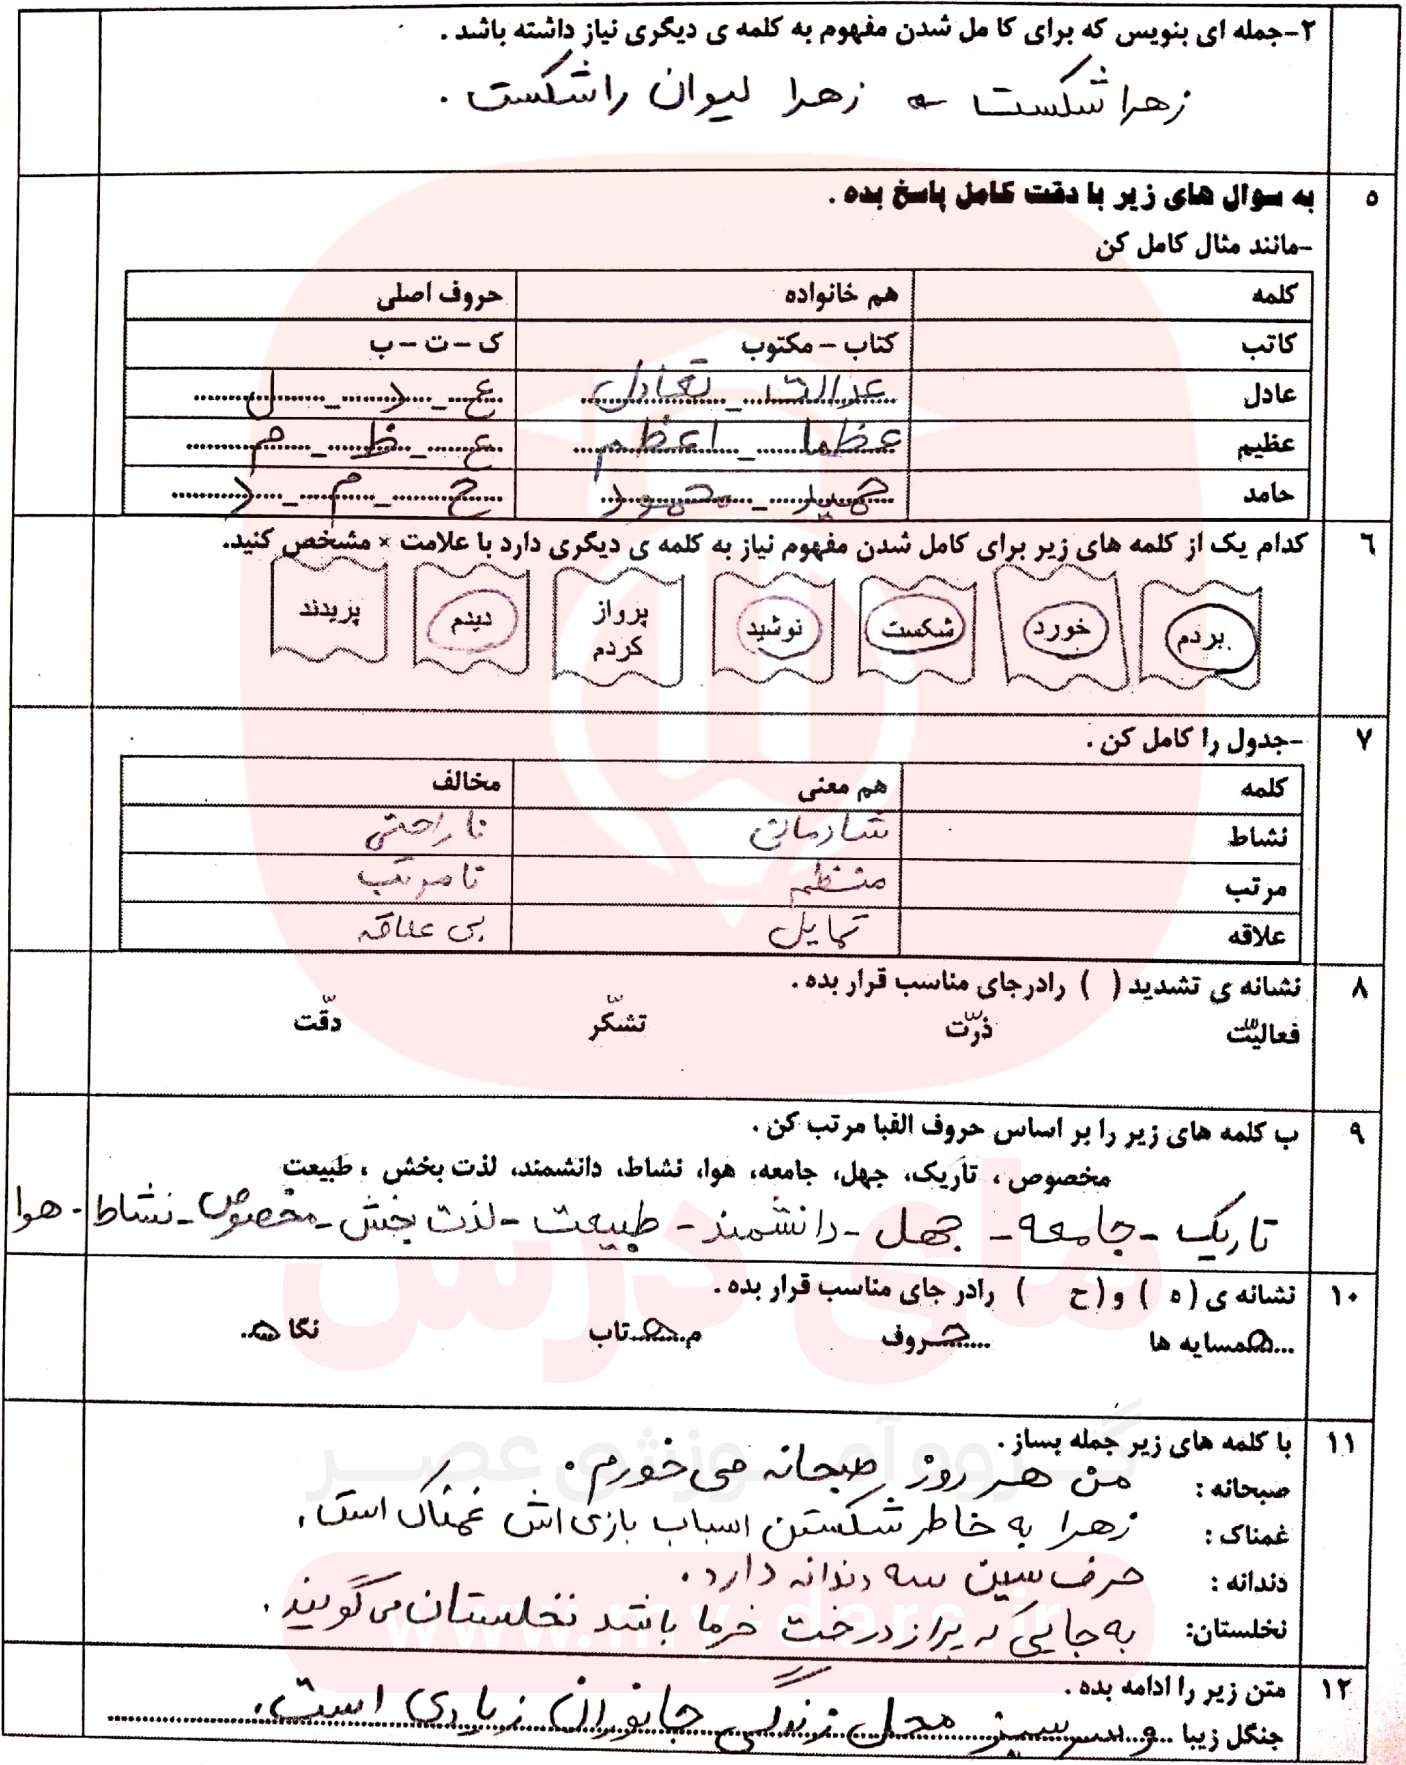 ۲-جمله ای بنویس که برای کا مل شدن مفهوم به کلمه ی دیگری نیاز داشته باشد .
زهرا شکست ← زهرا لیوان را شکست .
۵ به سوال های زیر با دقت کامل پاسخ بده .
-مانند مثال کامل کن
کلمه هم خانواده حروف اصلی
کاتب کتاب – مکتوب ک – ت – ب
عادل عدالت - تعادل ع - د - ل
عظیم عظما - اعظم ع - ظ - م
حامد حمید - محمود ح - م - د
۶ کدام یک از کلمه های زیر برای کامل شدن مفهوم نیاز به کلمه ی دیگری دارد با علامت × مشخص کنید.
بردم خورد شکست نوشید پرواز کردم دیدم پریدند
۷ -جدول را کامل کن .
کلمه هم معنی مخالف
نشاط شادمانی ناراحتی
مرتب منظم نامرتب
علاقه تمایل بی علاقه
۸ نشانه ی تشدید ( ) رادرجای مناسب قرار بده .
فعالیّت ذرّت تشکّر دقّت
۹ ب کلمه های زیر را بر اساس حروف الفبا مرتب کن .
مخصوص ، تاریک، جهل، جامعه، هوا، نشاط، دانشمند، لذت بخش ، طبیعت
تاریک - جامعه - جهل - دانشمند - طبیعت - لذت بخش - مخصوص - نشاط - هوا
۱۰ نشانه ی ( ه ) و ( ح ) رادر جای مناسب قرار بده .
...همسایه ها ...حروف م...هـ...تاب نگا ه..
۱۱ با کلمه های زیر جمله بساز .
صبحانه : من هر روز صبحانه می خورم .
غمناک : زهرا به خاطر شکستن اسباب بازی اش غمناک است .
دندانه : حرف سین سه دندانه دارد .
نخلستان: به جایی که پر از درخت خرما باشد نخلستان می گویند .
۱۲ متن زیر را ادامه بده .
جنگل زیبا و سرسبز محل زندگی جانوران زیادی است .
مای درس
گروه آموزشی عصر
www.my-dars.ir